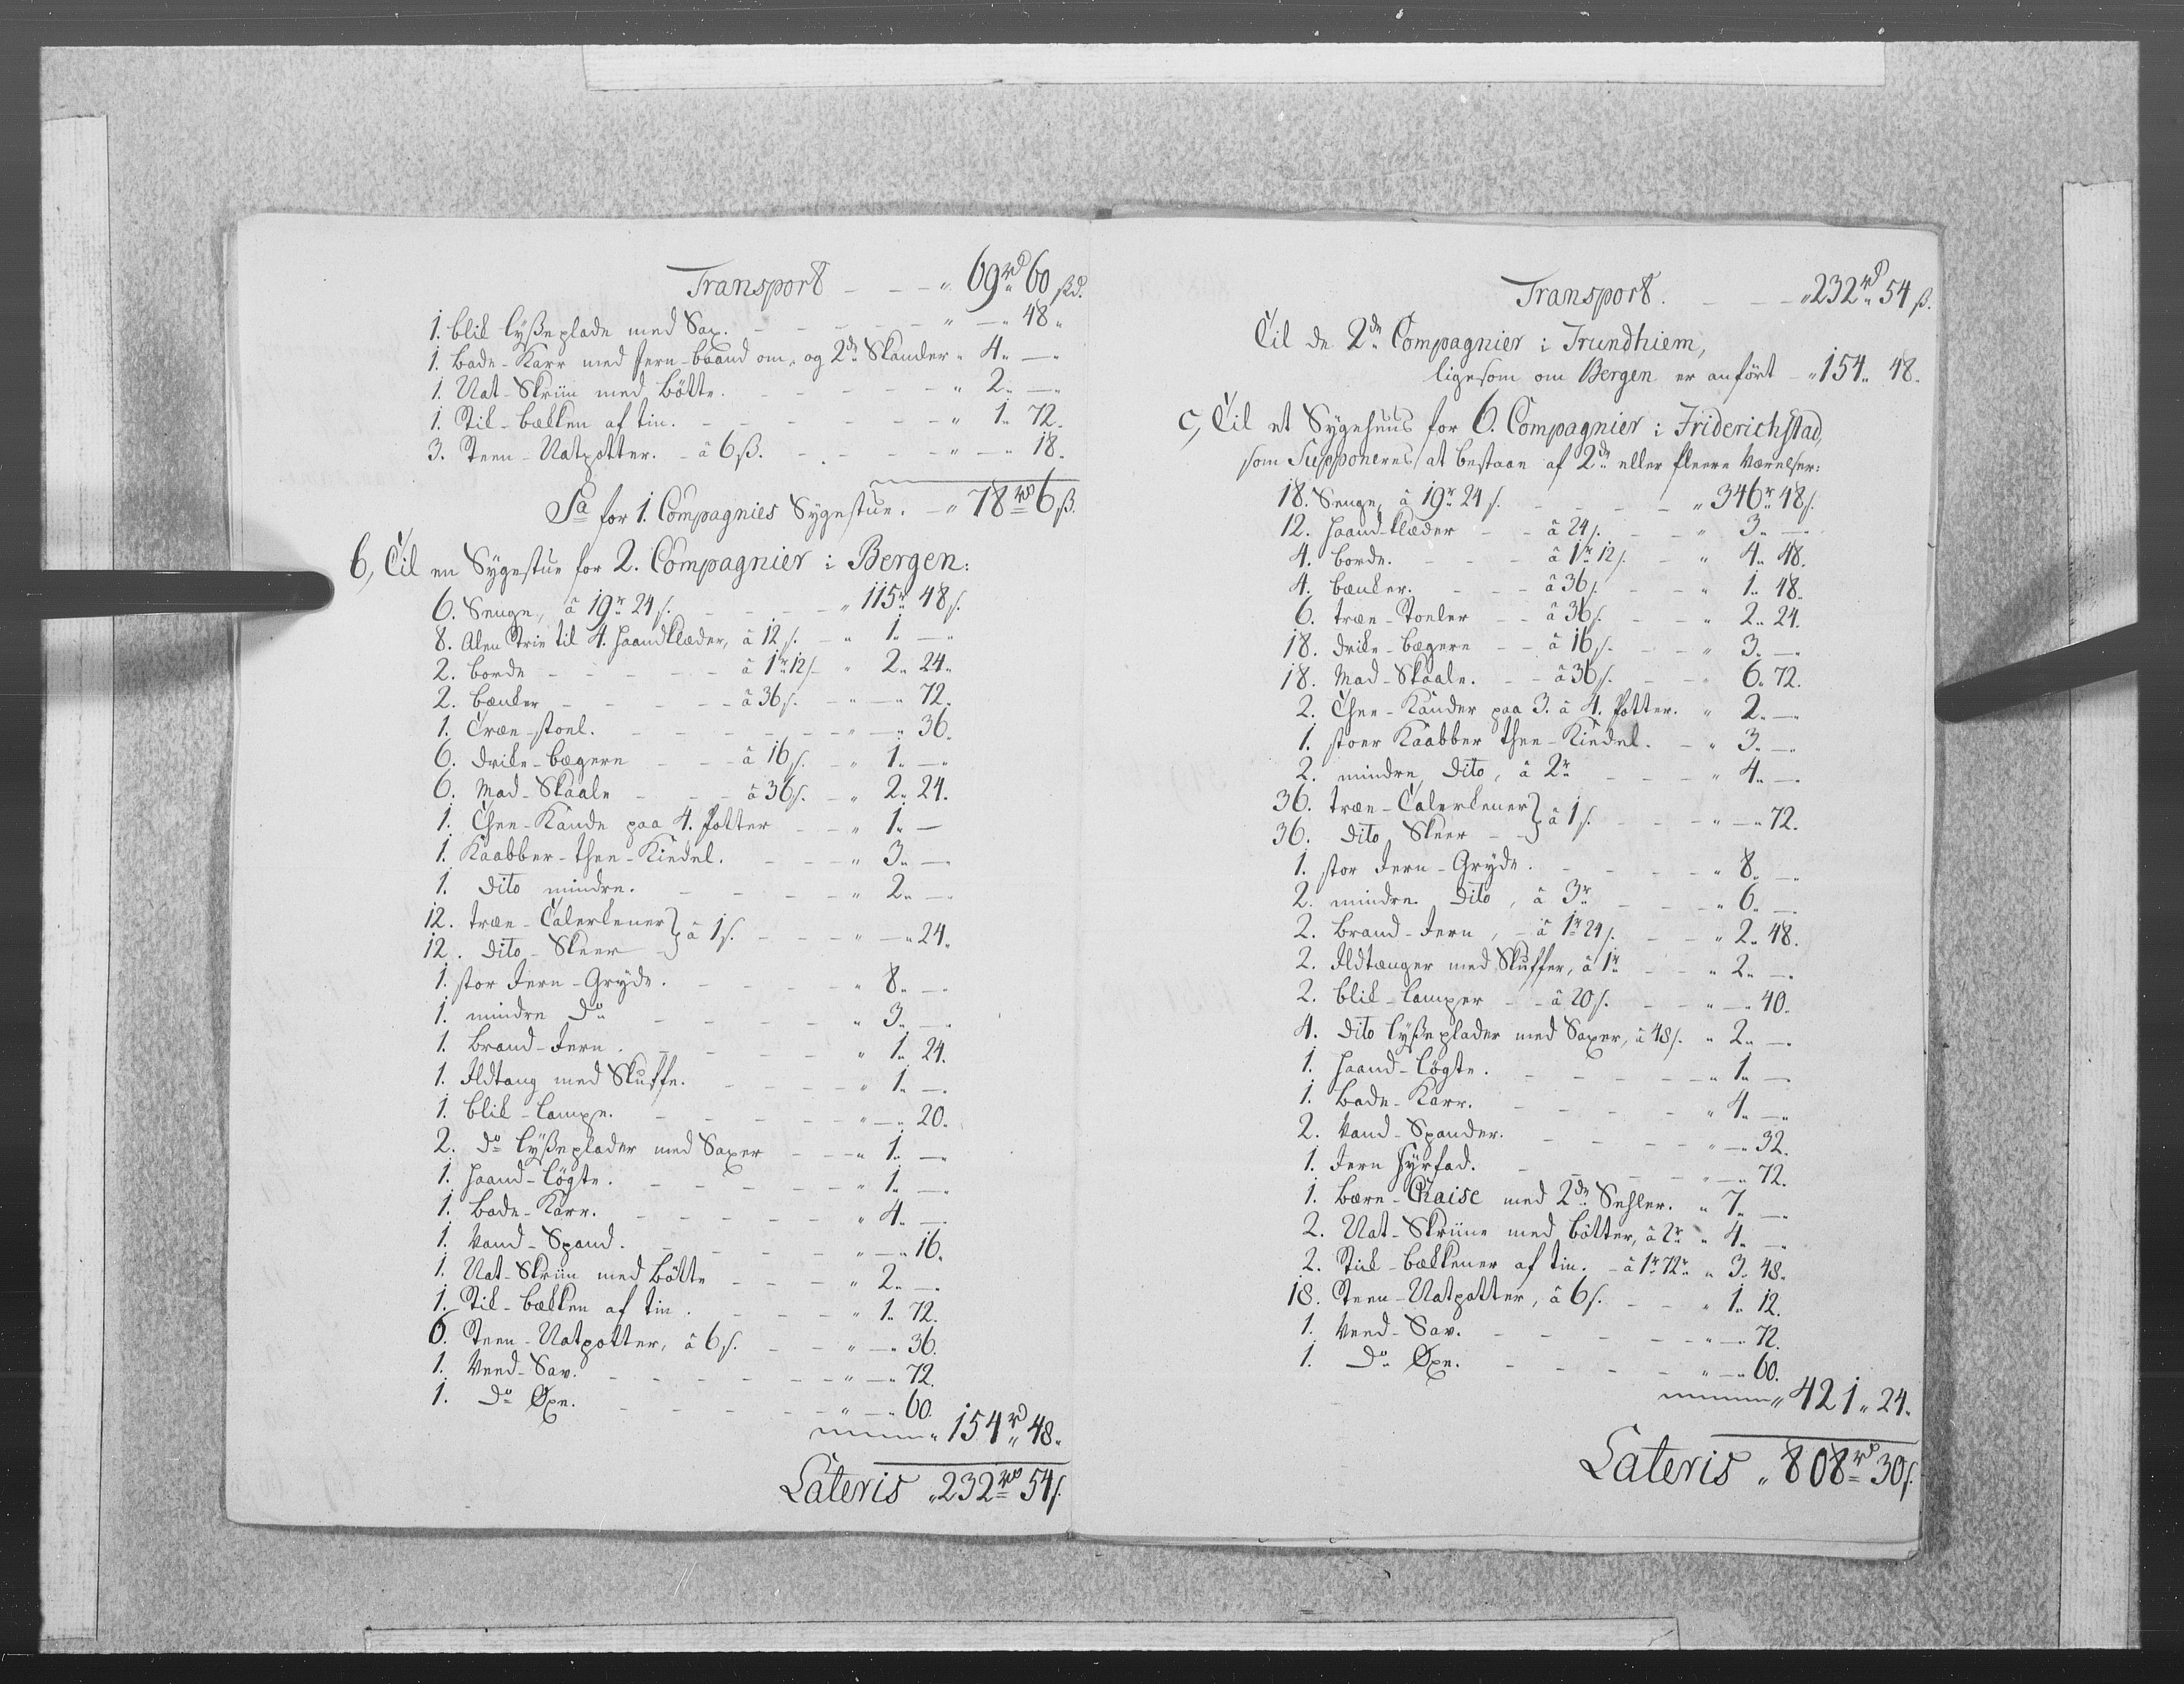 Transport - - - " 69 rd 60 ßd.
1. blik lysseplade med Sax. - - - - - " — " 48 "
1. bade-Karr med Jern-baand om, og 2de Skander " 4 " — "
1. Nat-Skriin med bøtte. - - - - - " 2 " — "
1. Stik-bækken af tin. - - - - - " 1 " 72.
3. Steen-Natpotter. - à 6 ß. - - - - " — " 18.
Sa for 1. Compagnies Sygestue. - " 78 rd 6 ß.
b, Til en Sygestue for 2. Compagnier i Bergen:
6. Senge, à 19 r 24 s. - - - - " 115 r 48 s.
8. Alen Strie til 4. Haandklæder, à 12 s. - " 1. — "
2. borde - - - - - à 1 r 12 s - " 2 " 24 "
2. bænker - - - - - à 36 s. - " — " 72.
1. Træe-stoel. - - - - - - " — " 36.
6. drike-bægere - - - à 16 s. - " 1 " — "
6. Mad-Skaale - - - à 36 s. - " 2 " 24.
1. Thee-Kande paa 4. Potter - - " 1 " —
1. Kaabber-thee-Kiedel. - - - " 3 " — .
1. Dito mindre. - - - - " 2 " — .
12. træe-Talerkener } à 1 s. - - - " — " 24.
12. Dito-Skeer
1. stor Jern-Gryde. - - - - " 8 " — .
1. mindre Do - - - - " 3 " — .
1. Brand-Jern. - - - - " 1 " 24.
1. Ildtang med Skuffe. - - - - " 1 " — .
1. blik-lampe. - - - - - " — " 20.
2. Do lysseplader med Saxer - - - " 1 " — "
1. Haand-løgte. - - - - - " 1 " — .
1. bade-Karr. - - - - " 4 " — .
1. Vand-Spand. - - - - " — " 16.
1. Nat-Skriin med bøtte - - - " 2 " — .
1. Stik-bækken af tin. - - - " 1 " 72.
6. Steen-Natpotter, à 6 s. - - " — " 36.
1. Veed-Sav. - - - - - " — " 72.
1. Do Øxe. - - - - - " — " 60.
" 154 rd 48 "
Lateris " 232 rd 54 s.
Transport. - - - " 232 rd 54 ß.
Til de 2de Compagnier i Trundhiem,
ligesom om Bergen er anført - " 154 " 48.
c, Til et Sygehuus for 6. Compagnier i Friderichstad,
som Supponeres at bestaae af 2de eller fleere Værelser:
18. Senge, à 19 r 24 s. - - - - " 346 r 48 s.
12. Haand-klæder - - à 24 s. - - " 3 " — "
4. borde. - - - à 1 r 12 s. - " 4 " 48.
4. bænker. - - - à 36 s. - - " 1 " 48.
6. træe-Stoeler - - à 36 s. - - " 2 " 24.
18. drik-bægere - - à 16 s. - - " 3 " — .
18. Mad-Skaale. - - à 36 s. - - " 6 " 72.
2. Thee-Kander paa 3. à 4. Potter. " 2 " — .
1. stoer Kaabber thee-Kiedel. - " 3 " — .
2. mindre Dito, à 2 r - - - " 4 " — .
36. træe-Talerkener } à 1 s. - - - " — " 72.
36. Dito Skeer - -
1. stor Jern-Gryde. - - - - " 8 " — .
2. mindre Dito, à 3 r - - - " 6 " — .
2. Brand-Jern, - à 1 r 24 s. - - " 2 " 48.
2. Ildtænger med Skuffer, à 1 r - - " 2 " — .
2. blik-lamper - - à 20 s. - - " — " 40.
4. Dito lysseplader med Saxer, à 48 s. " 2 " — .
1. Haand-løgte. - - - - - " 1 " — .
1. Bade-Karr. - - - - " 4 " — "
2. Vand-Spander. - - - - " — " 32.
1. Jern Fyrfad. - - - - " — " 72.
1. bære-Chaise med 2de Sehler. " 7 " — .
2. Nat-Skriine med bøtter, à 2 r " 4 " — .
2. Stik-bækkener af tin. - à 1 r 72 r " 3 " 48.
18. Steen-Natpotter, à 6 s. - - " 1 " 12.
1. Veed-Sav. - - - - - " — " 72.
1. Do Øxe. - - - - " — " 60.
" 421 " 24.
Lateris " 808 rd 30 s.